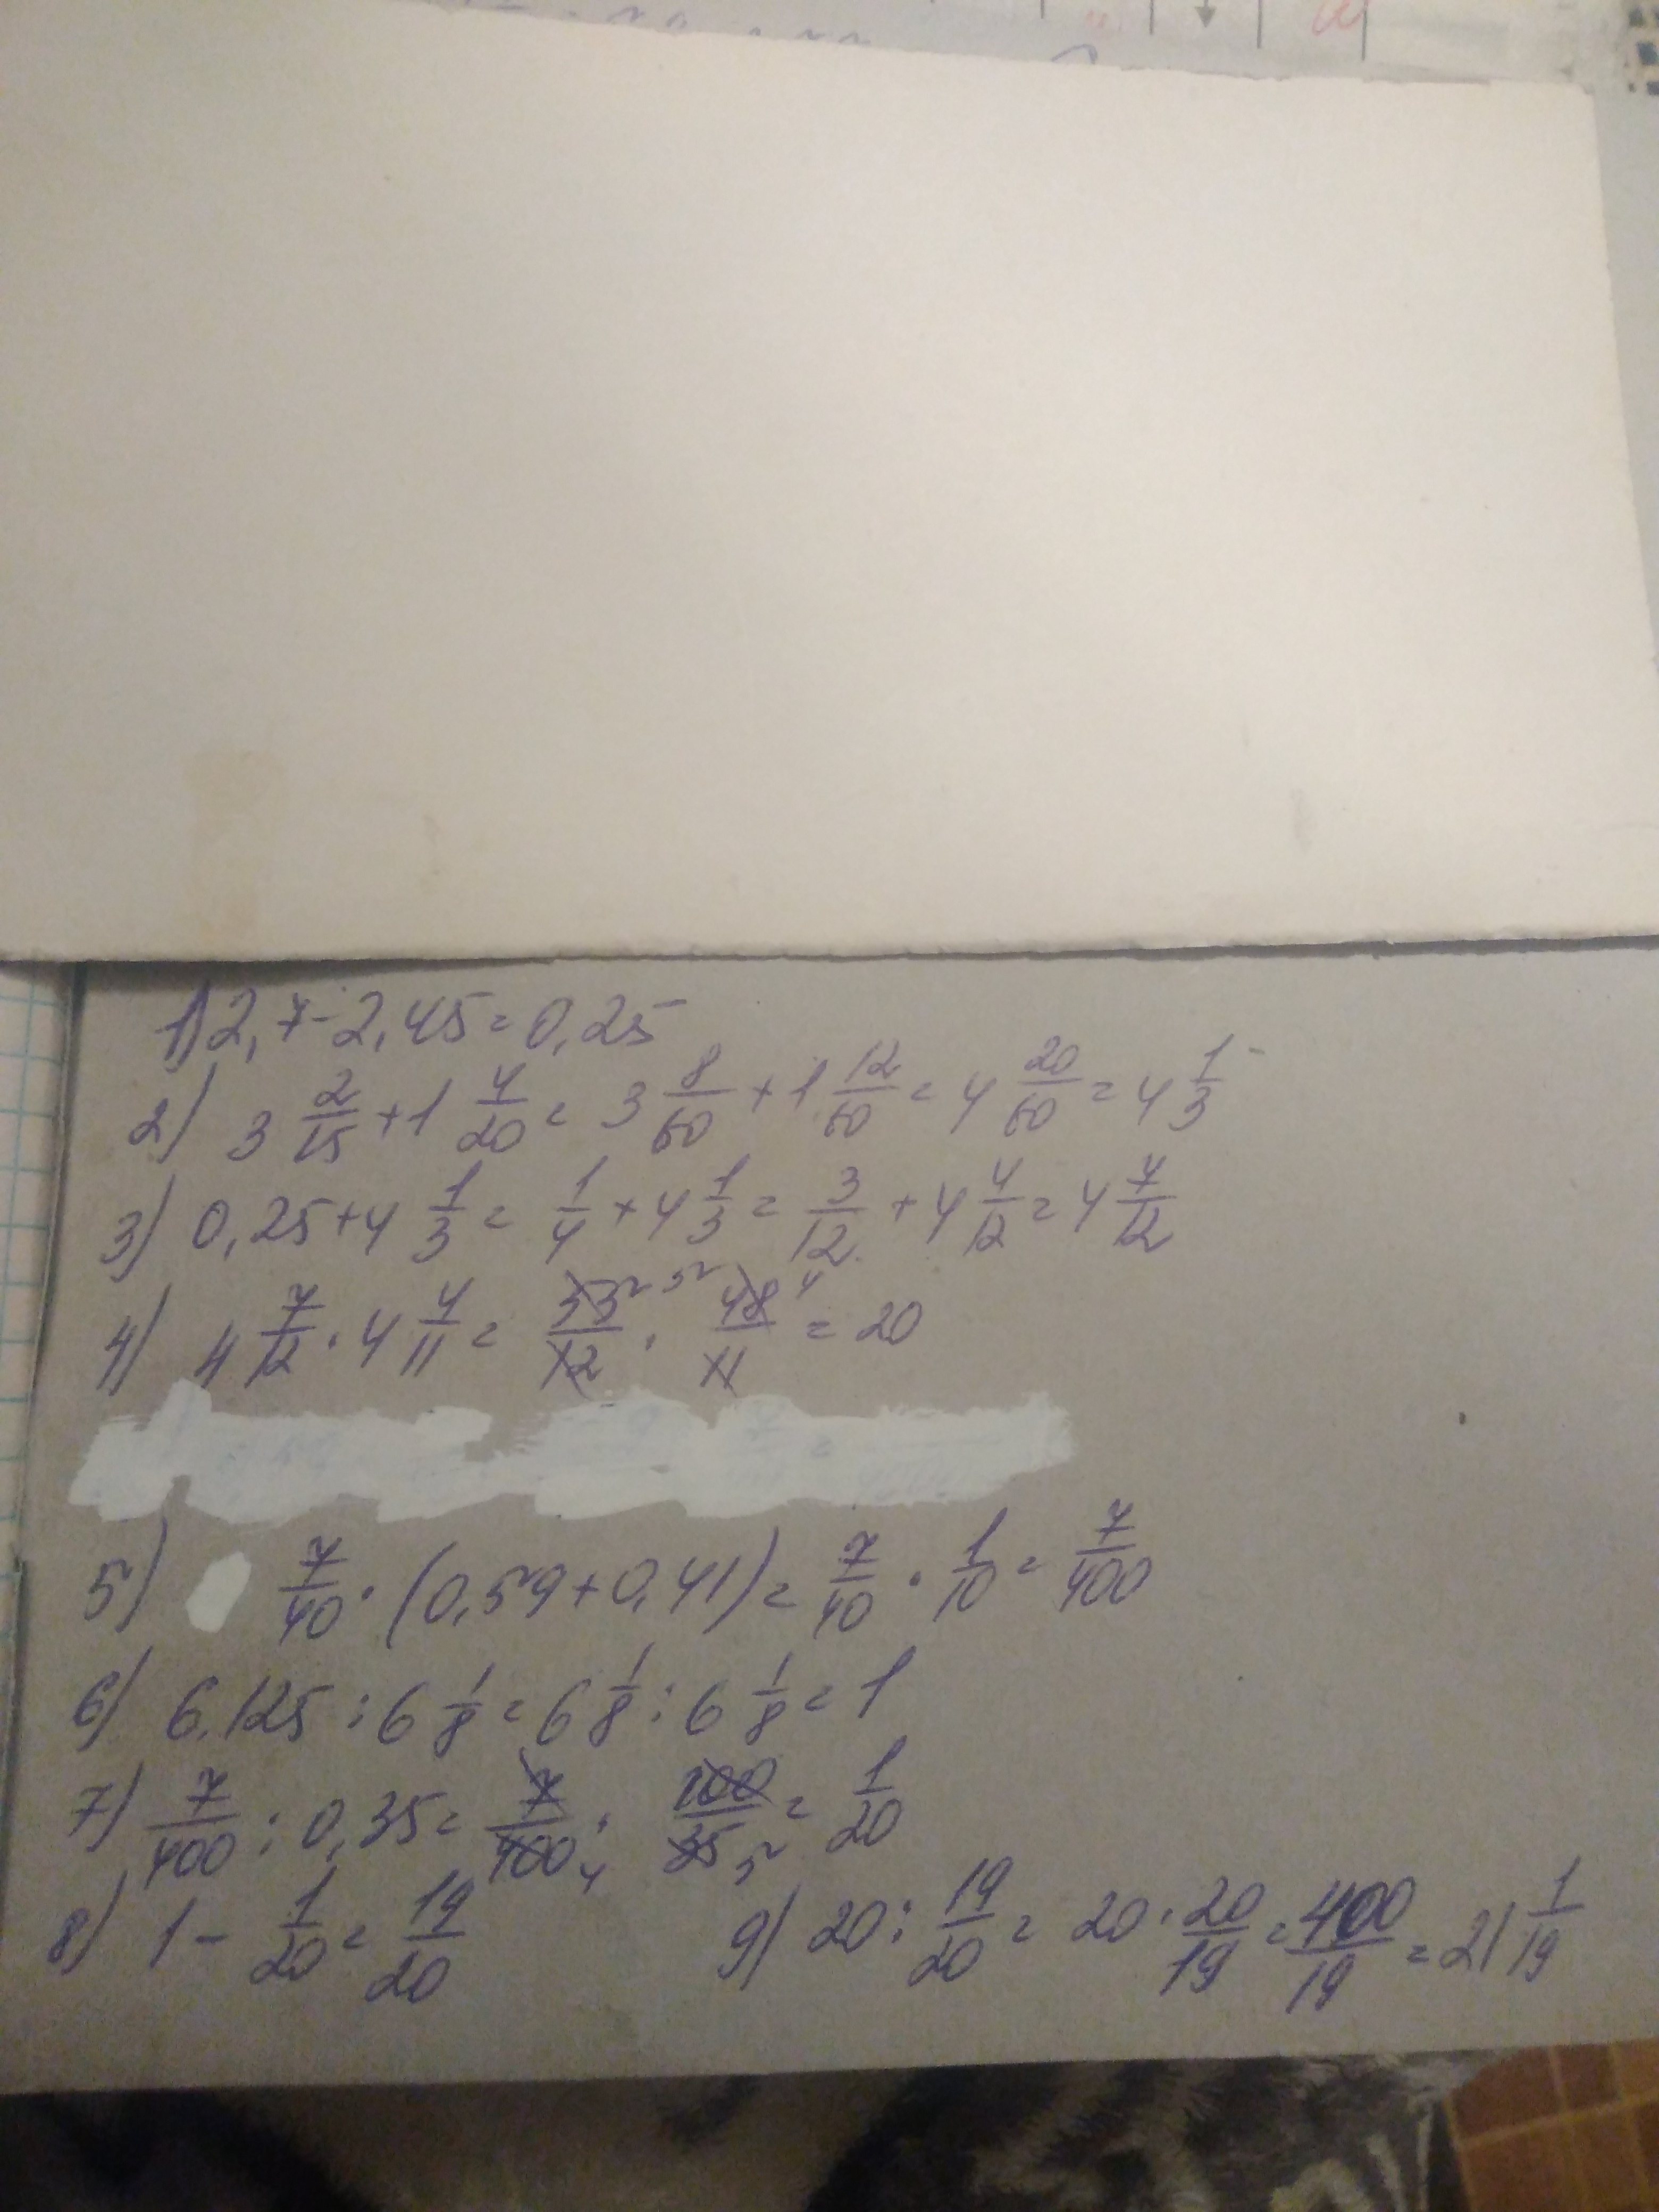 1) 2,7-2,45=0,25
2) 3 2/15 + 1 4/20 = 3 8/60 + 1 12/60 = 4 20/60 = 4 1/3
3) 0,25 + 4 1/3 = 1/4 + 4 1/3 = 3/12 + 4 4/12 = 4 7/12
4) 4 7/12 · 4 4/11 = 55/12 5 · 48/11 4 = 20
5) 7/40 · (0,59+0,41) = 7/40 · 1/10 = 7/400
6) 6.125 : 6 1/8 = 6 1/8 : 6 1/8 = 1
7) 7/400 : 0,35 = 7/400 4 · 100/35 5 = 1/20
8) 1 - 1/20 = 19/20 9) 20 : 19/20 = 20 · 20/19 = 400/19 = 21 1/19